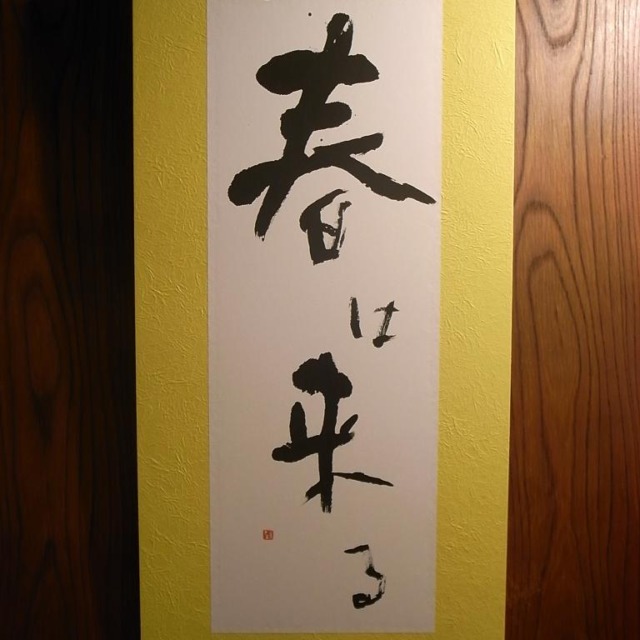 春は来る